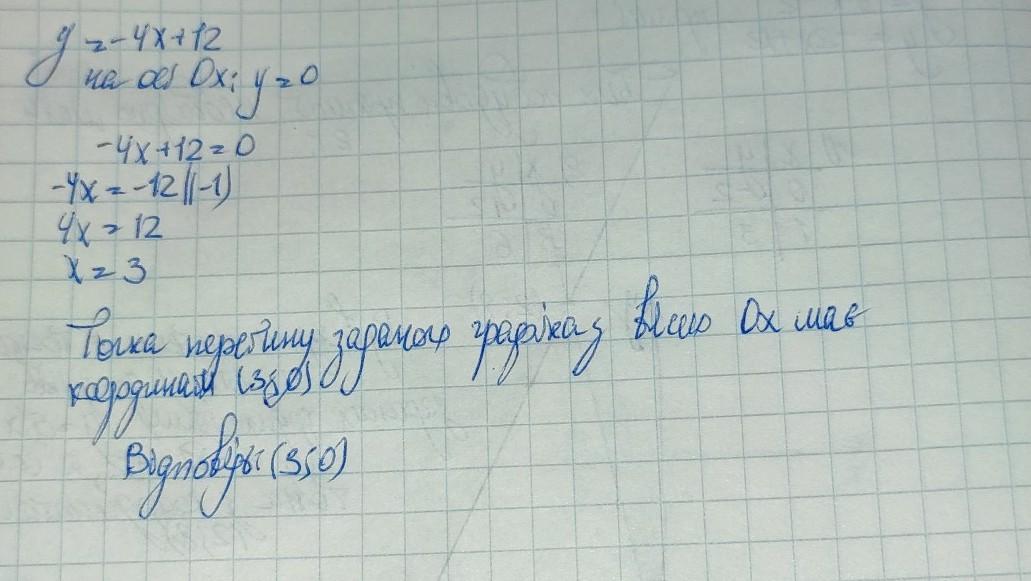 y = -4x+12
на осі Ox: y=0
-4x+12=0
-4x = -12 |(-1)
4x = 12
x = 3
Точка перетину заданого графіка з віссю Ox має
координати (3;0)
Відповідь: (3;0)